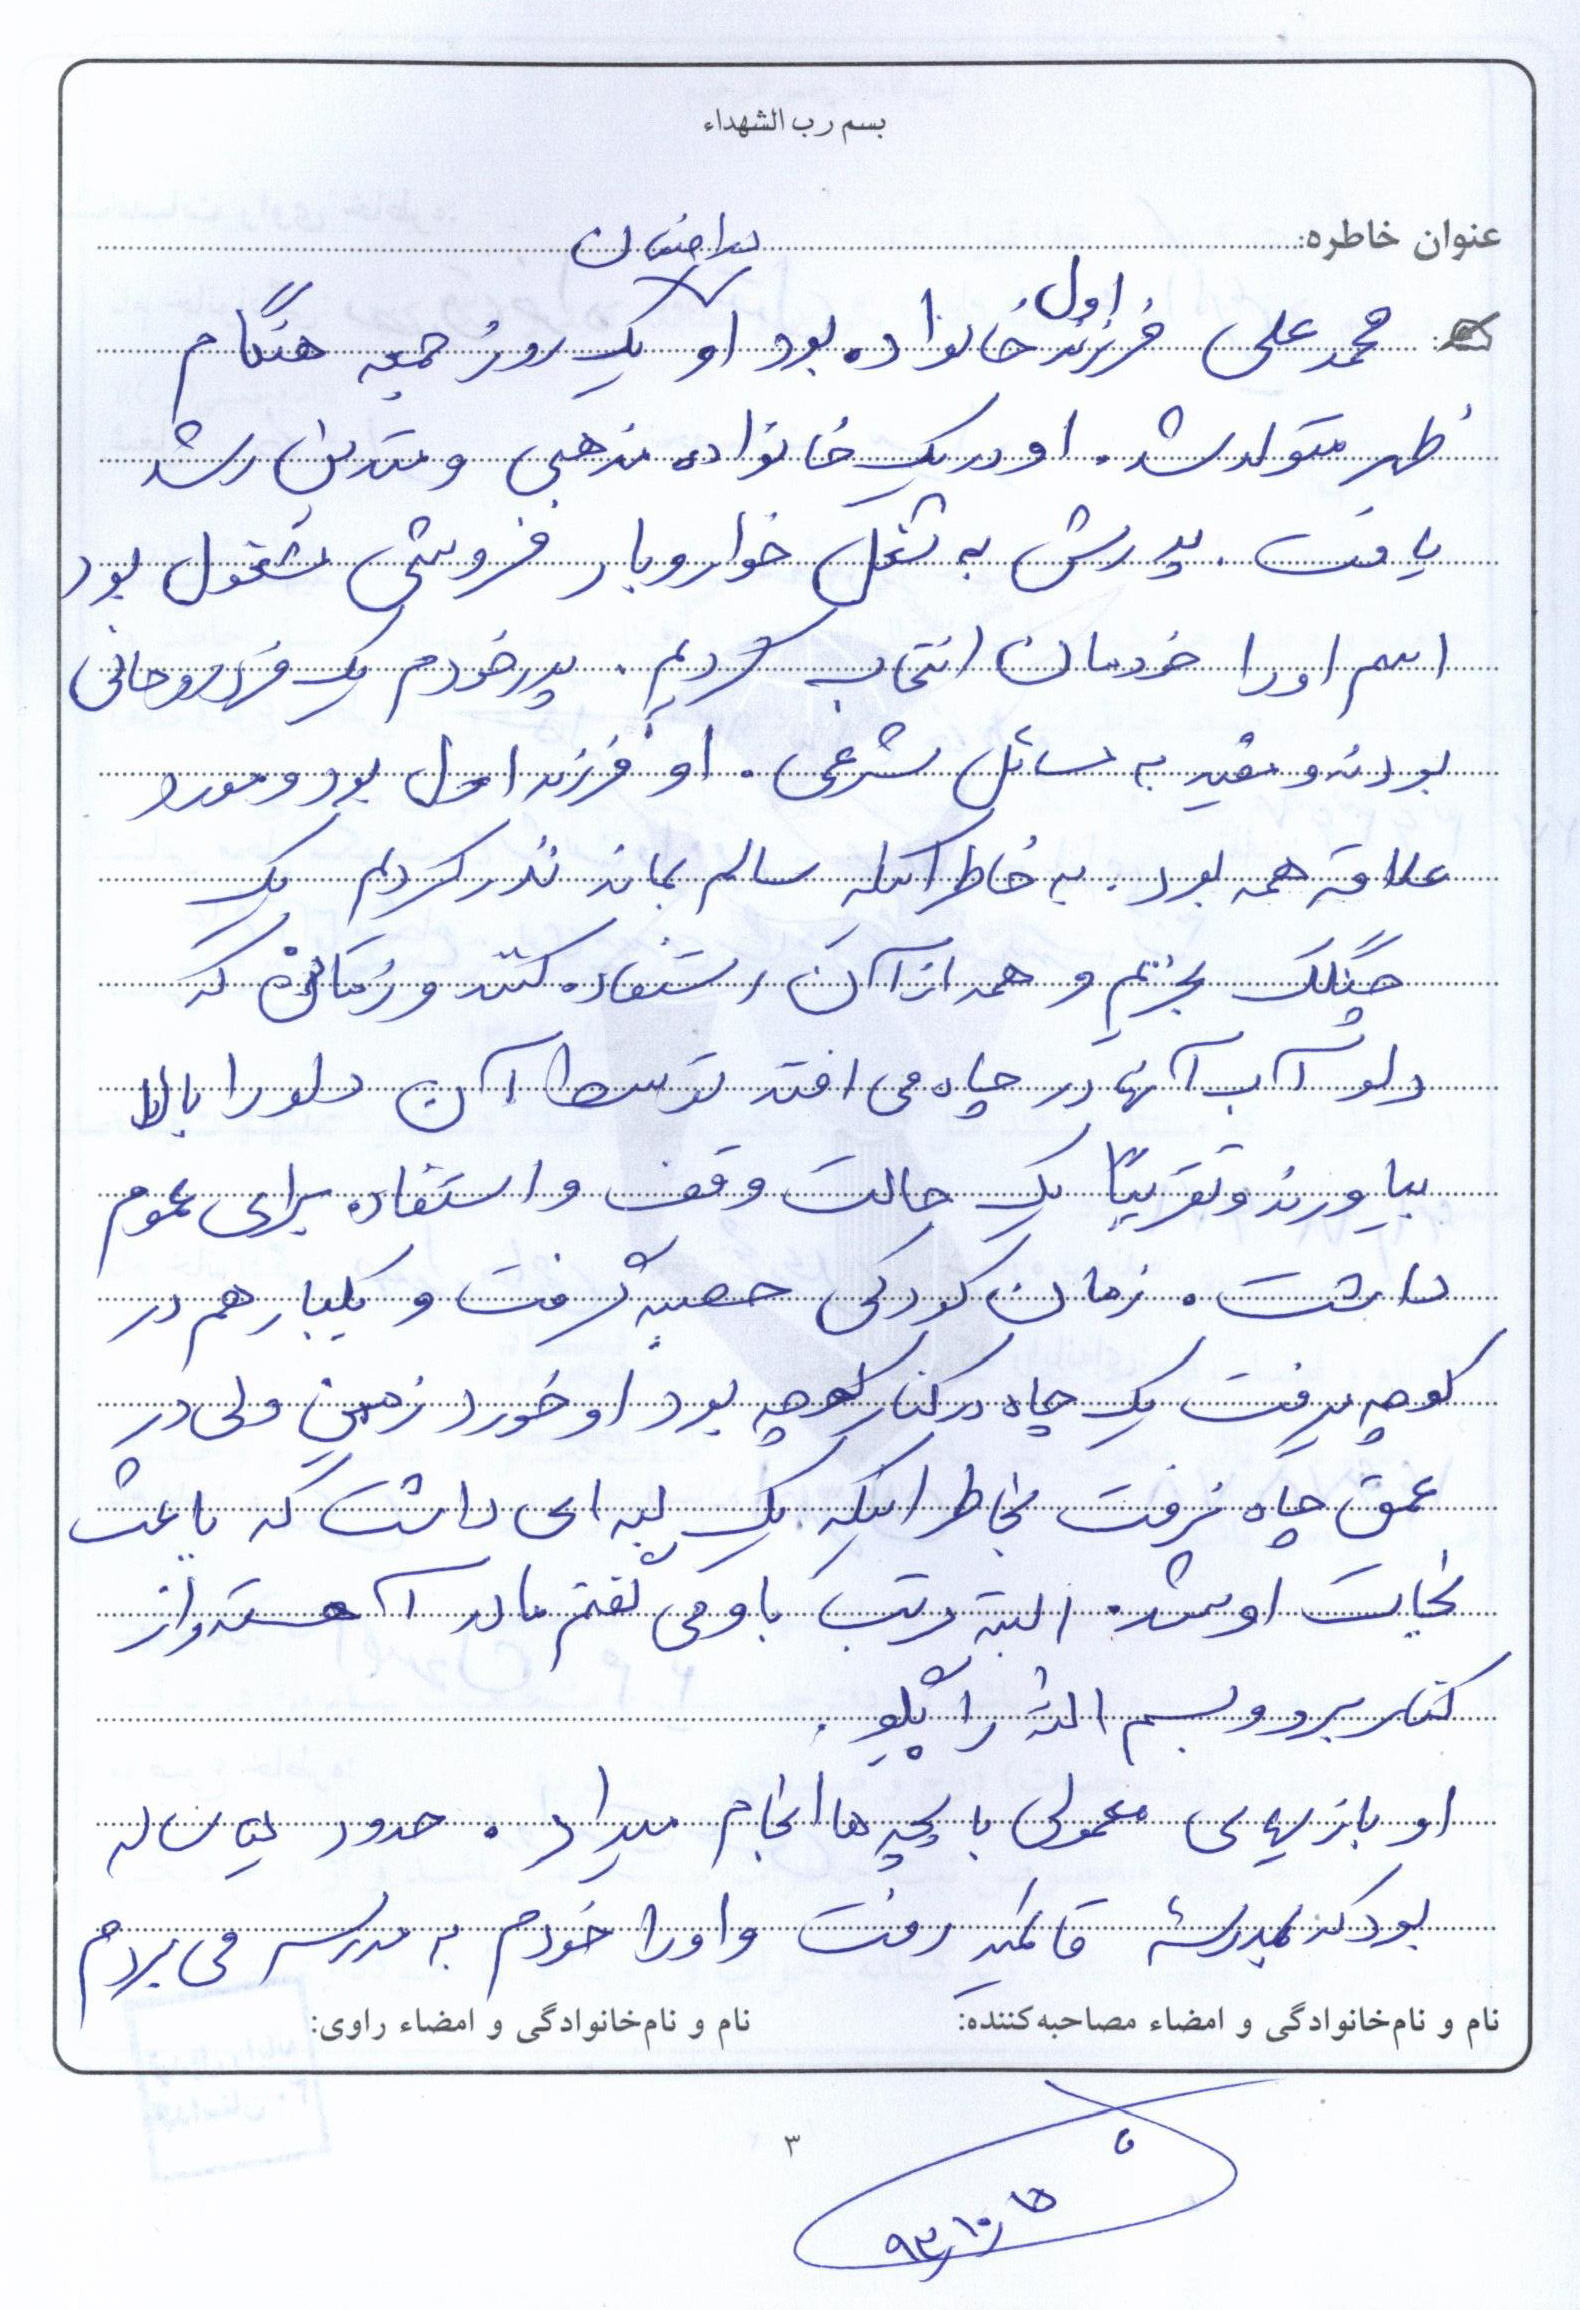 بسم رب الشهداء
عنوان خاطره:
اول
محمد علی فرزند خانواده بود او یک روز جمعه هنگام
ظهر متولد شد. او در یک خانواده مذهبی و متدین رشد
یافت. پدرش به شغل خواروبار فروشی مشغول بود
اسم او را خودمان انتخاب کردیم. پدر خودم یک فرد روحانی
بودند و مقید به مسائل شرعی. او فرزند اول بود و مورد
علاقه همه بود. به خاطر اینکه سالم بماند نذر کردیم یک
چنگک بخریم و همه از آن استفاده کنند و زمانی که
دلو آب آنها در چاه می افتد توسط آن دلو را بالا
بیاورند و تقریباً یک حالت وقف و استفاده برای عموم
داشت. زمان کودکی حصبه گرفت و یکبار هم در
کوچه میرفت یک چاه در کنار کوچه بود او خورد زمین ولی در
عمق چاه نرفت بخاطر اینکه یک لبه ای داشت که باعث
نجات او شد. البته مرتب باو می گفتم مادر آهسته و از
کنار برو و بسم الله را بگو.
او بازیهای معمولی با بچه ها انجام میداد. حدود ساله
بود که بمدرسه رفت و او را خودم به مدرسه می بردم
نام و نام‌خانوادگی و امضاء مصاحبه‌کننده: نام و نام‌خانوادگی و امضاء راوی:
۳
۹۳/۱۰/۱۵